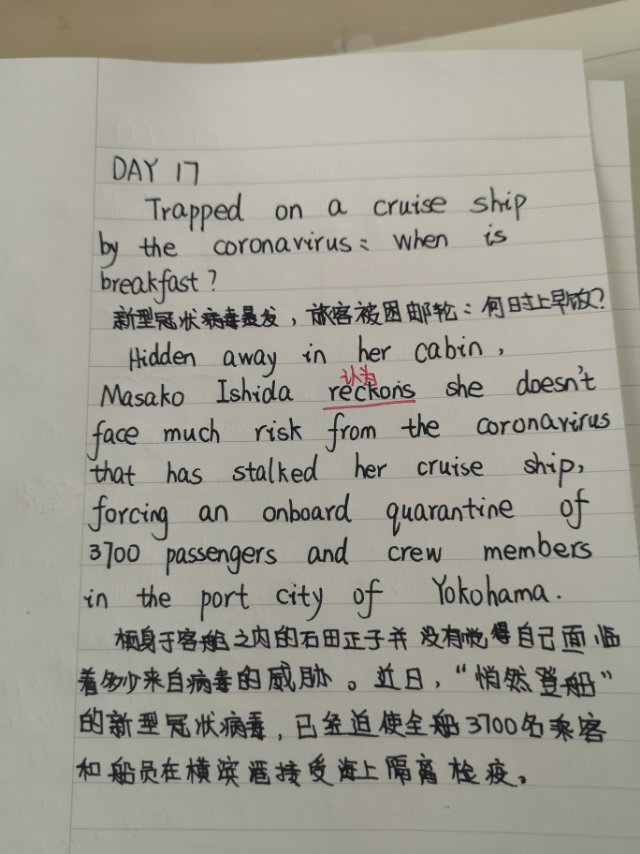 DAY 17
Trapped on a cruise ship
by the coronavirus: when is
breakfast?
新型冠状病毒暴发，旅客被困邮轮：何时上早饭？
Hidden away in her cabin,
认为
Masako Ishida reckons she doesn't
face much risk from the coronavirus
that has stalked her cruise ship,
forcing an onboard quarantine of
3700 passengers and crew members
in the port city of Yokohama.
栖身于客舱之内的石田正子并没有觉得自己面临
着多少来自病毒的威胁。近日，“悄然登船”
的新型冠状病毒，已经迫使全船3700名乘客
和船员在横滨港接受海上隔离检疫。